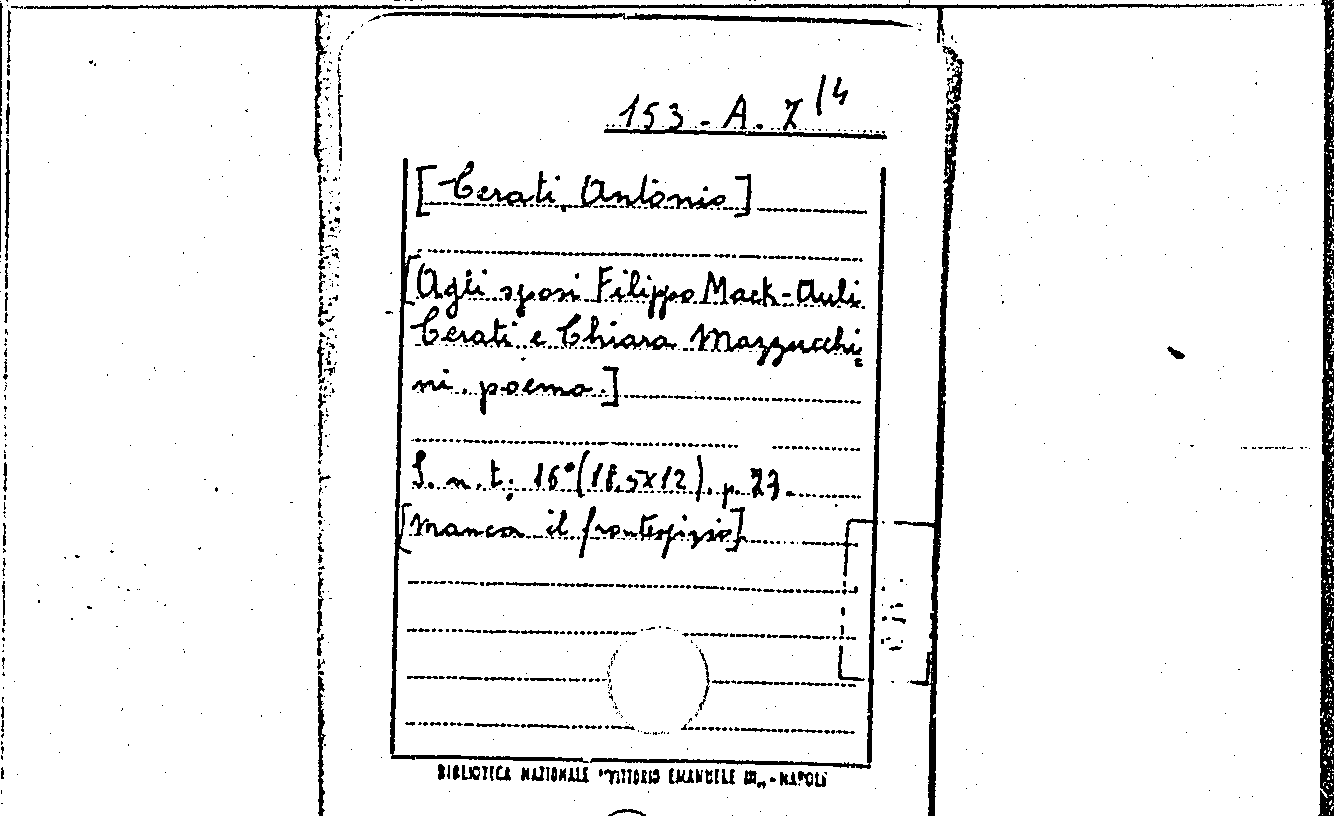 153 - A. 7/4
[Cerati, Antonio]
[Agli sposi Filippo Mack-Auli
Cerati e Chiara Mazzucchi
ni. poema.]
S. n. t; 16° (18,5x12). p. 27.
[manca il frontespizio].
BIBLIOTECA NAZIONALE "VITTORIO EMANUELE III„ - NAPOLI